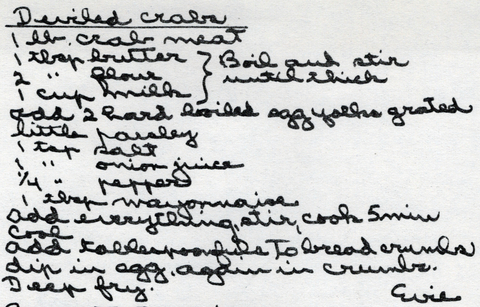 Deviled crabs
1 lb. crab meat
1 tbsp butter } Boil and stir
2 " flour until thick
1 cup milk
add 2 hard boiled egg yolks grated
little parsley
1 tsp salt
1 " onion juice
1/4 " pepper
1 tbsp mayonnaise
add everything, stir, cook 5 min
Cool
add tablespoonfuls to bread crumbs
dip in egg, again in crumbs.
Deep fry.
Evie